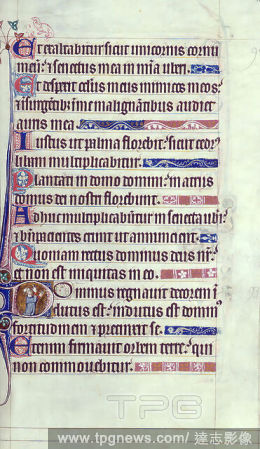 Et exaltabitur sicut unicornis cornu
meū: ⁊ senectus mea in mīa uberi.
Et despexit oculus meus inimicos meos:
⁊ insurgētib; ī me malignātibus audiet
auris mea.
Iustus ut palma florebit: sicut cedr᷒
libani multiplicabitur.
Plantati in domo domini: in atriis
domus dei nostri florebunt.
Adhuc multiplicabūtur in senecta uberi:
⁊ bn̄ pacientes erunt ut annuncient.
Quoniam rectus dominus deus nr̄:
et non est iniquitas in eo.
Dominus regnauit decorem ī
dutus est: indutus est domin᷒
fortitudinem ⁊ precinxit se.
Etenim firmauit orbem terre: qui
non commouebitur.
TPG
www.tpgnews.com/ 達志影像